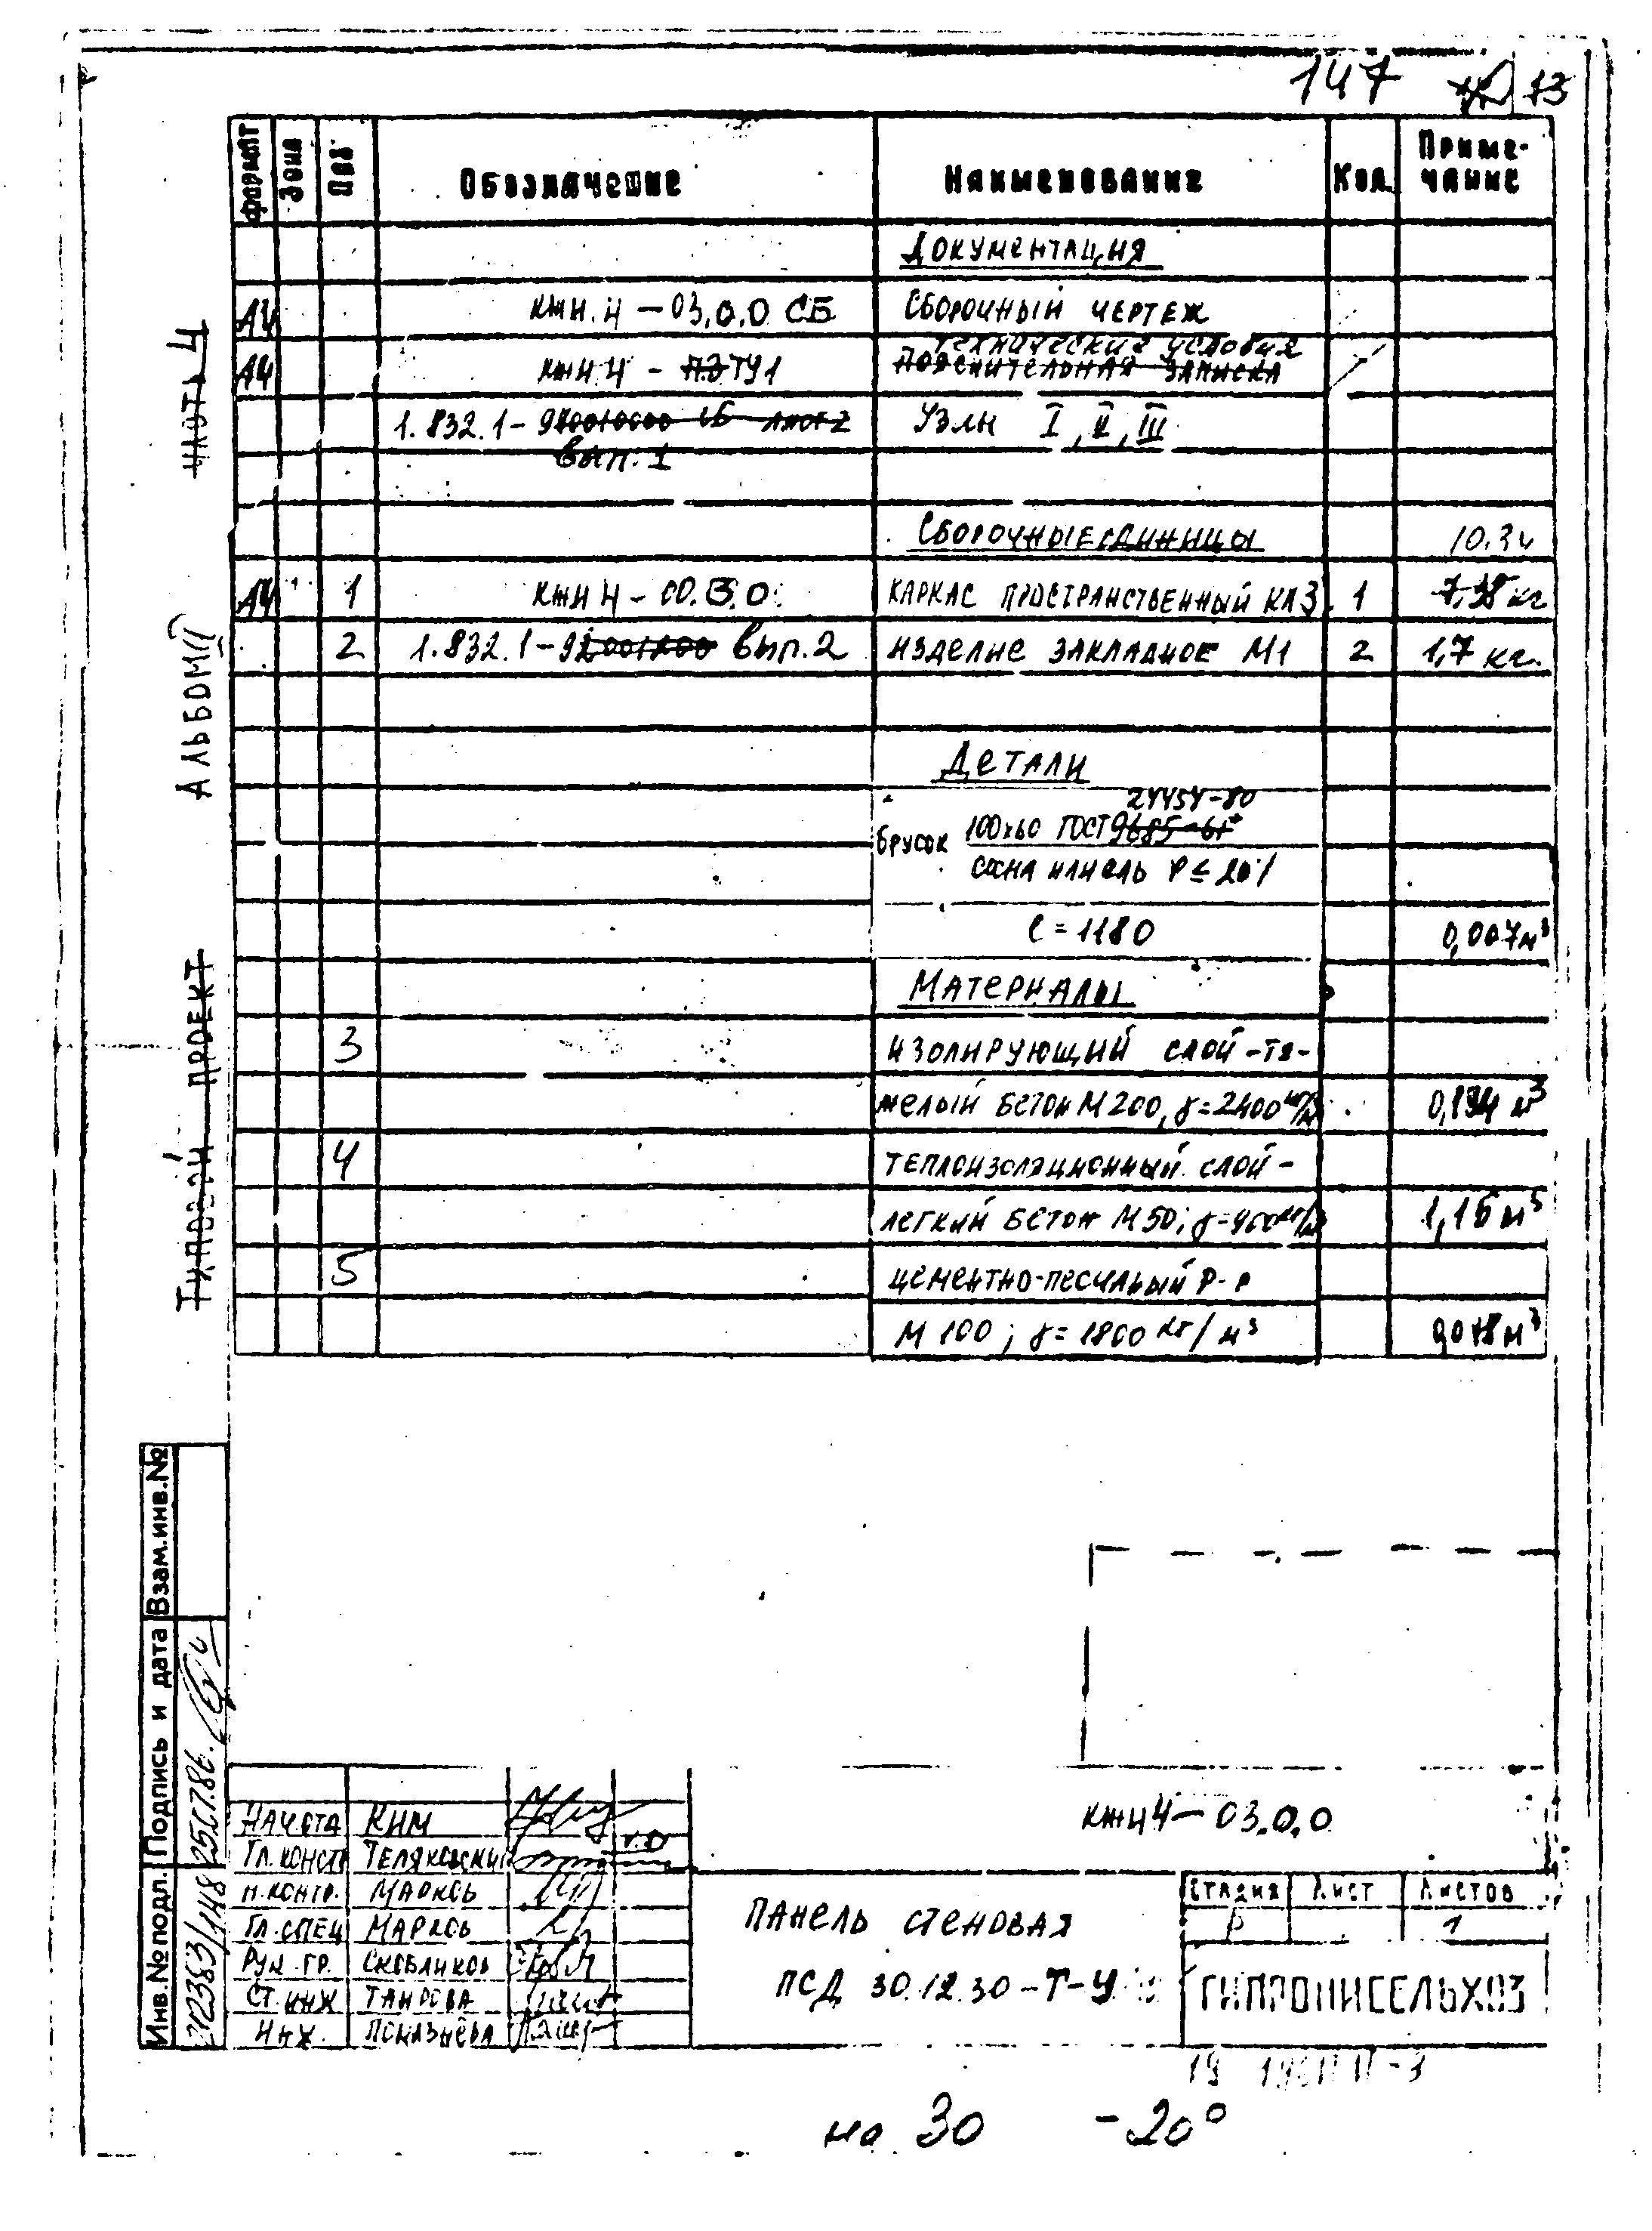 147 73
Формат Зона Поз. Обозначение Наименование Кол. Приме-
чание
Документация
А4 КЖИ.4-03.0.0 СБ Сборочный чертеж
Технические условия
А4 КЖИ4-ПЗ ТУ1 Пояснительная записка
1.832.1-9 СБ лист 2 Узлы I, II, III
Вып. 1
Сборочные единицы 10.34
А4 1 КЖИ4-00.3.0 Каркас пространственный КП3 1 7,38 кг
2 1.832.1-9 Вып.2 Изделие закладное М1 2 1,7 кг.
Детали
24454-80
Брусок 100х60 ГОСТ 9685-61*
сосна или ель Р ≤ 20%
ℓ=1180 0,007м³
Материалы
3 Изолирующий слой-тя-
желый бетон М200, γ=2400кг/м³ 0,194 м³
4 Теплоизоляционный слой-
легкий бетон М50; γ=900кг/м³ 1,16 м³
5 Цементно-песчаный р-р
М100; γ=1800 кг/м³ 0,018м³
Типовой проект Альбом II часть 4
Взам.инв.№
Подпись и дата
Инв.№ подл.
212383/148
КЖИ4-03.0.0
Нач.ота Ким
Гл.констр Теляковский
Н.контр. Марков
Гл.спец Марков
Рук.гр. Скобликов
Ст.инж Таирова
Инж. Показнёва
Панель стеновая
ПСД 30.12.30-Т-У
Стадия Лист Листов
Р 1
ГИПРОНИСЕЛЬХОЗ
на 30 -20°